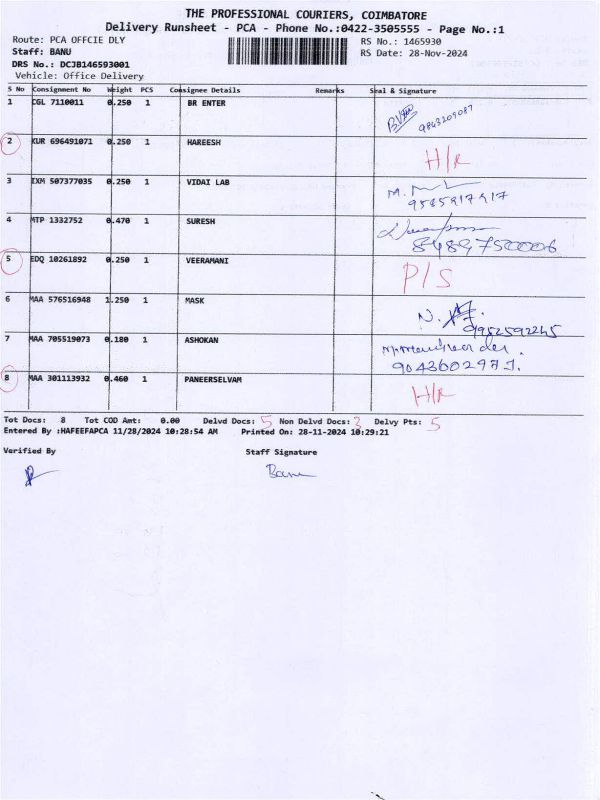 THE PROFESSIONAL COURIERS, COIMBATORE
Delivery Runsheet - PCA - Phone No.:0422-3505555 - Page No.:1
Route: PCA OFFCIE DLY
RS No.: 1465930
Staff: BANU
RS Date: 28-Nov-2024
DRS No.: DCJB146593001
Vehicle: Office Delivery
S No Consignment No Weight PCS Consignee Details Remarks Seal & Signature
1 CGL 7110011 0.250 1 BR ENTER 9843209087
2 KUR 696491071 0.250 1 HAREESH H/R
3 IXM 507377035 0.250 1 VIDAI LAB
9585917417
4 MTP 1332752 0.470 1 SURESH
8489750006
5 EDQ 10261892 0.250 1 VEERAMANI P/S
6 MAA 576516948 1.250 1 MASK
9952592245
7 MAA 705519073 0.180 1 ASHOKAN
9043602971.
8 MAA 301113932 0.460 1 PANEERSELVAM H/R
Tot Docs: 8 Tot COD Amt: 0.00 Delvd Docs: 5 Non Delvd Docs: 3 Delvy Pts: 5
Entered By :HAFEEFAPCA 11/28/2024 10:28:54 AM Printed On: 28-11-2024 10:29:21
Verified By Staff Signature
Banu